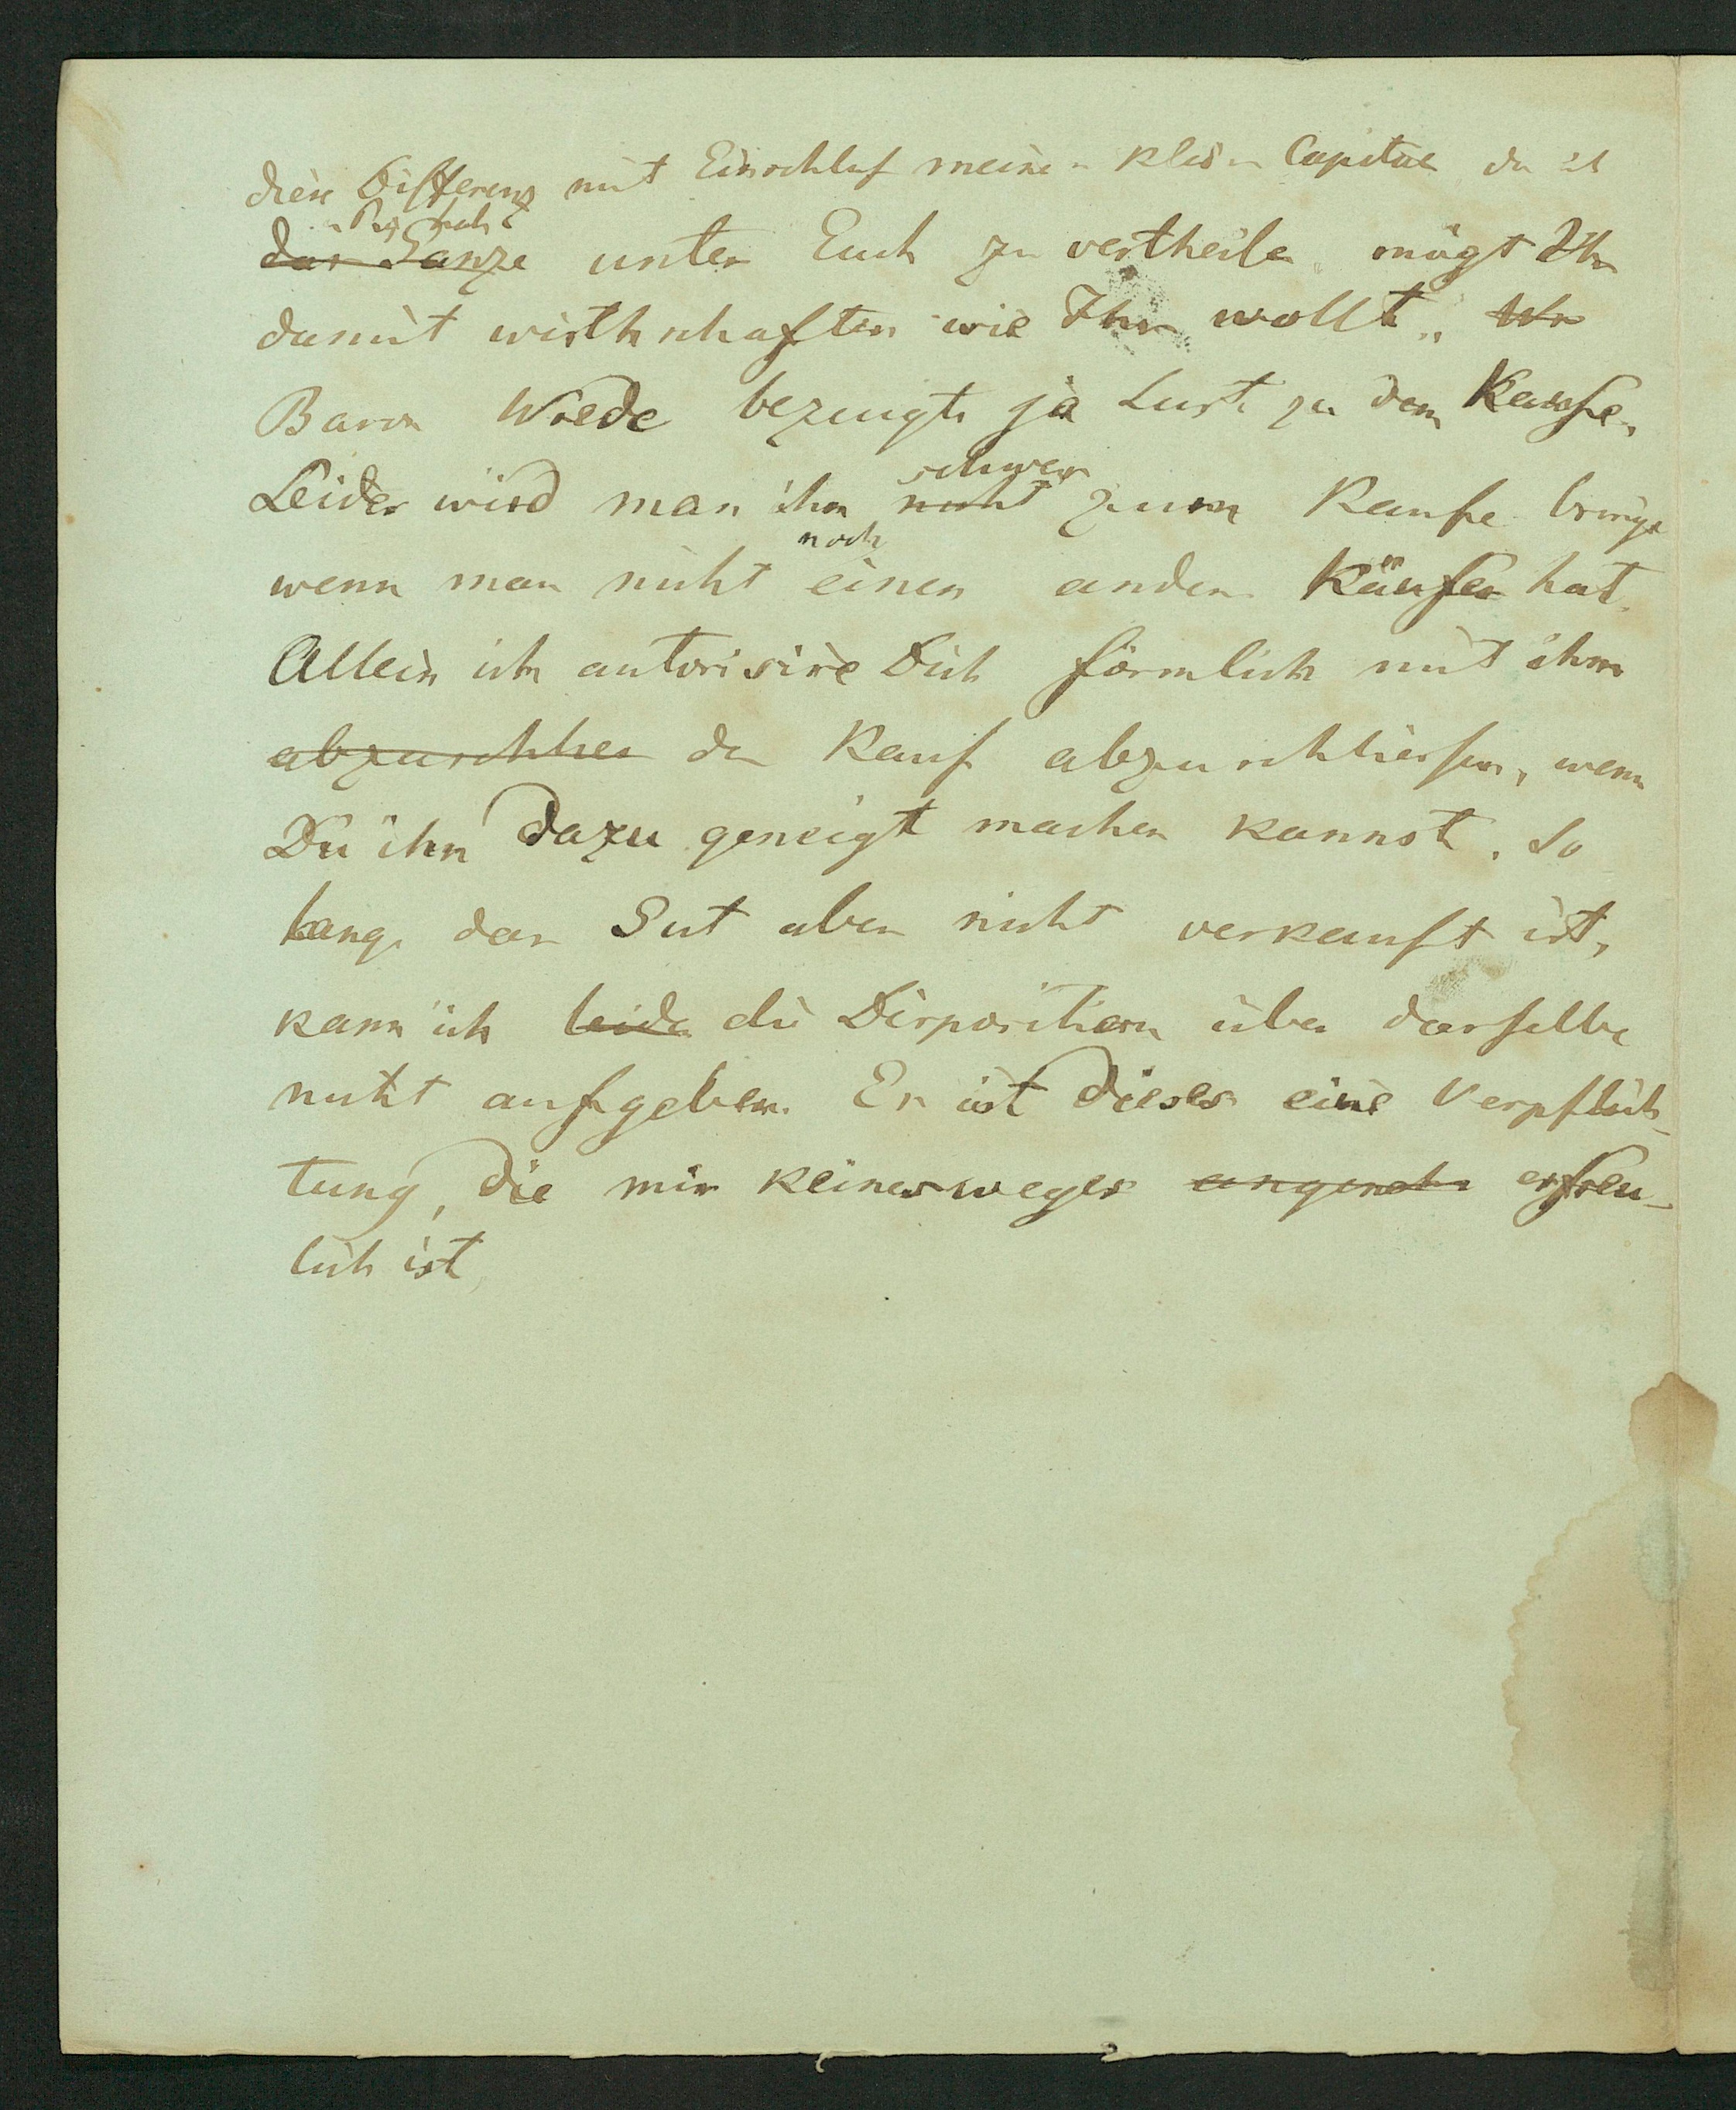 diese Differenz mit Einschluß meines kleinen Capitals da ich
das Ganze unter Euch zu vertheilen mögt Ihr
damit wirthschaften wie Ihr wollt.
Baron Wrede bezeugte ja Lust zu dem Kaufe.
schwer
Leider wird man ihn nicht zum Kaufe bringen
noch
wenn man nicht einen andern Käufer hat.
Allein ich autorisire Dich förmlich mit ihm
abzuschlies den Kauf abzuschliessen, wenn
Du ihn dazu geneigt machen kannst. So
lange das Gut aber nicht verkauft ist,
kann ich leider die Disposition über dasselbe
nicht aufgeben. Es ist dieses eine Verpflich-
tung, die mir keinesweges angeneh erfreu-
lich ist